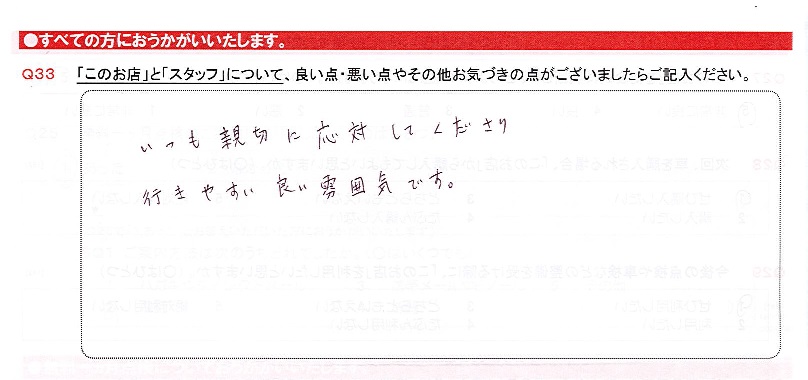 ●すべての方におうかがいいたします。
Q33 「このお店」と「スタッフ」について、良い点・悪い点やその他お気づきの点がございましたらご記入ください。
いつも親切に応対してくださり
行きやすい良い雰囲気です。